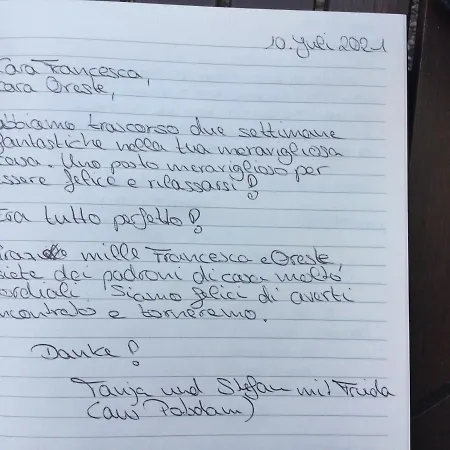 10. Juli 2021
Cara Francesca,
cara Oreste,
abbiamo trascorso due settimane
fantastiche nella tua meravigliosa
casa. Uno posto meraviglioso per
essere felice e rilassarsi!
Era tutto perfetto!
mille Francesca e Oreste,
siete dei padroni di casa molto
cordiali. Siamo felici di averti
incontrato e torneremo.
Danke!
Tanja und Stefan mit Frida
(aus Potsdam)